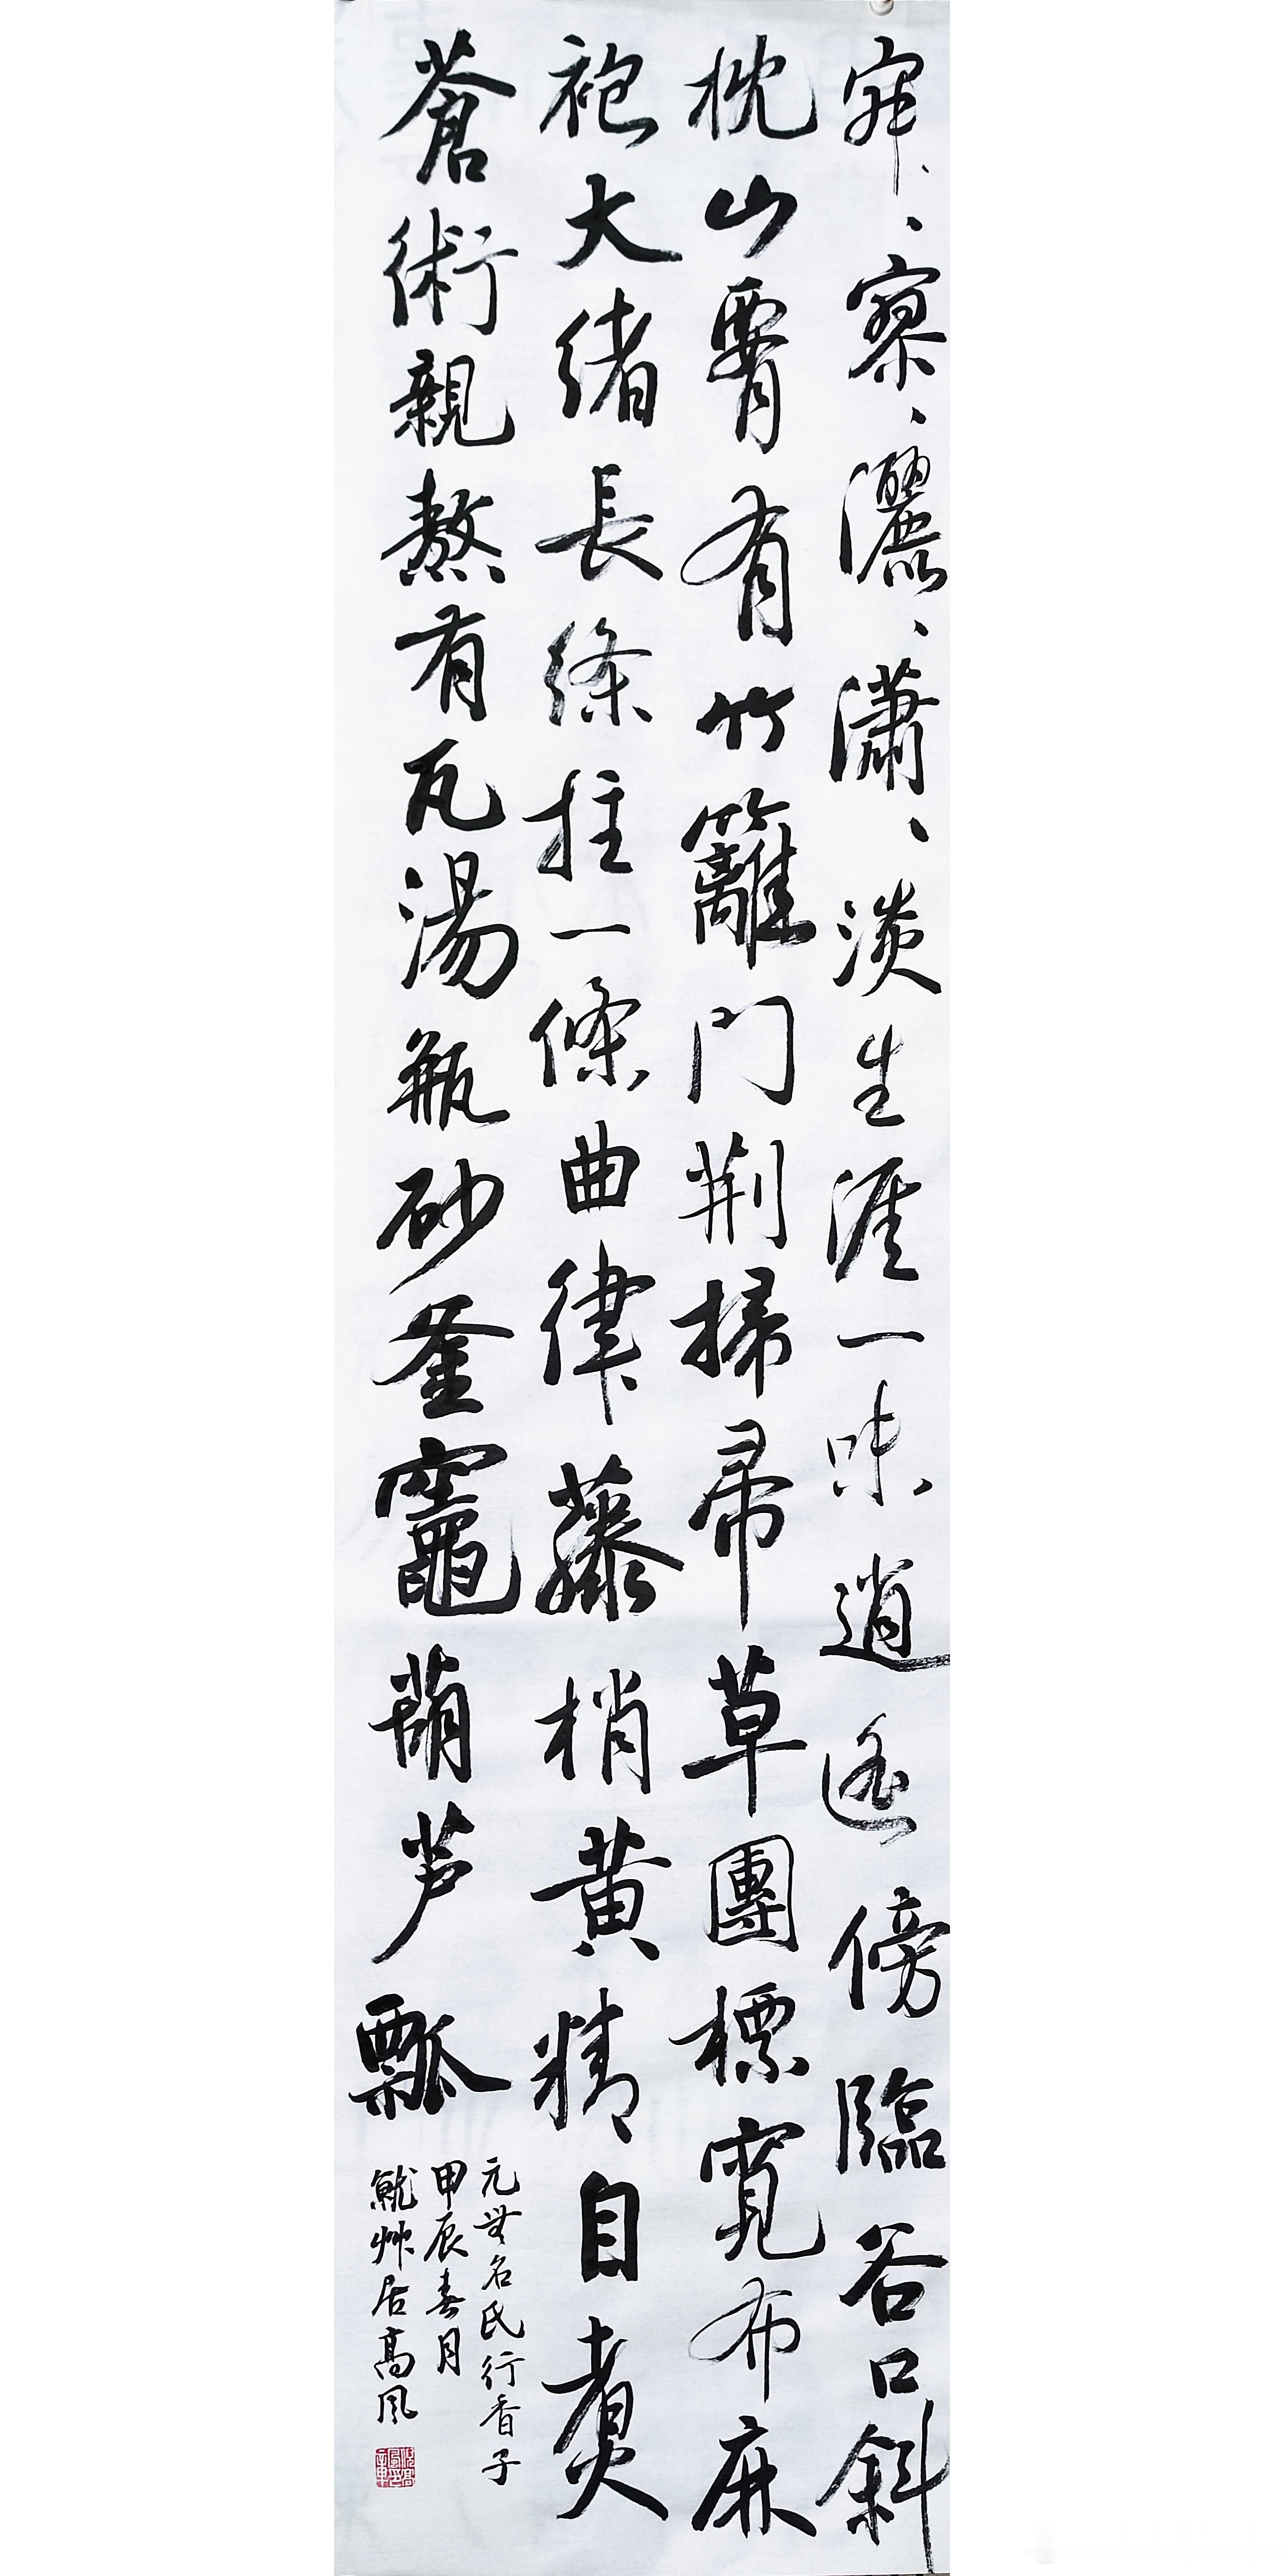 寂、寥、灑、瀟、淡生涯一味逍遙傍臨谷口斜
枕山腰有竹籬門荆掃帚草團標寬布麻
袍大緒長絛拄一條曲律藤梢黄精自煑
蒼術親熬有瓦湯瓶砂釜竈葫芦瓢
元無名氏行香子
甲辰春月
艸居高风